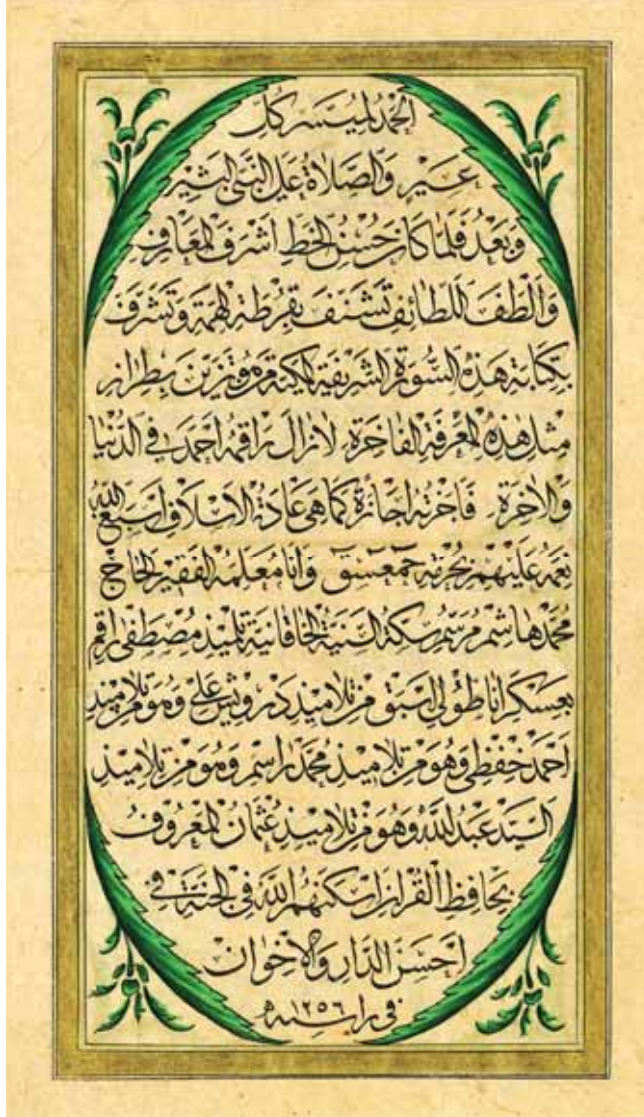 الحمد لميسر كل
عسير والصلاة على النبى البشير
وبعد فلما كان حسن الخط اشرف المعارف
والطف اللطائف تشنف بقرطة الهمة وتشرف
بكتابة هذه السورة الشريفة المكية من هو متزين بطراز
مثل هذه المعرفة الفاخرة لا زال راقمه احمد فى الدنيا
والاخرة فاجزته اجازة كما هى عادة الاسلاف اسبغ الله
نعمه عليهم بحرمة حمعسق وانا معلمه الفقير الحاج
محمد هاشم مرسم سكة السنية الخاقانية تلميذ مصطفى راقم
بعسكر اناطولى السبق من تلاميذ درويش على وهو من تلاميذ
احمد حفظى وهو من تلاميذ محمد راسم وهو من تلاميذ
السيد عبد الله وهو من تلاميذ عثمان المعروف
بحافظ القران اسكنهم الله فى الجنة فى
احسن الدار والاخوان
فى را سنه ١٢٥٦